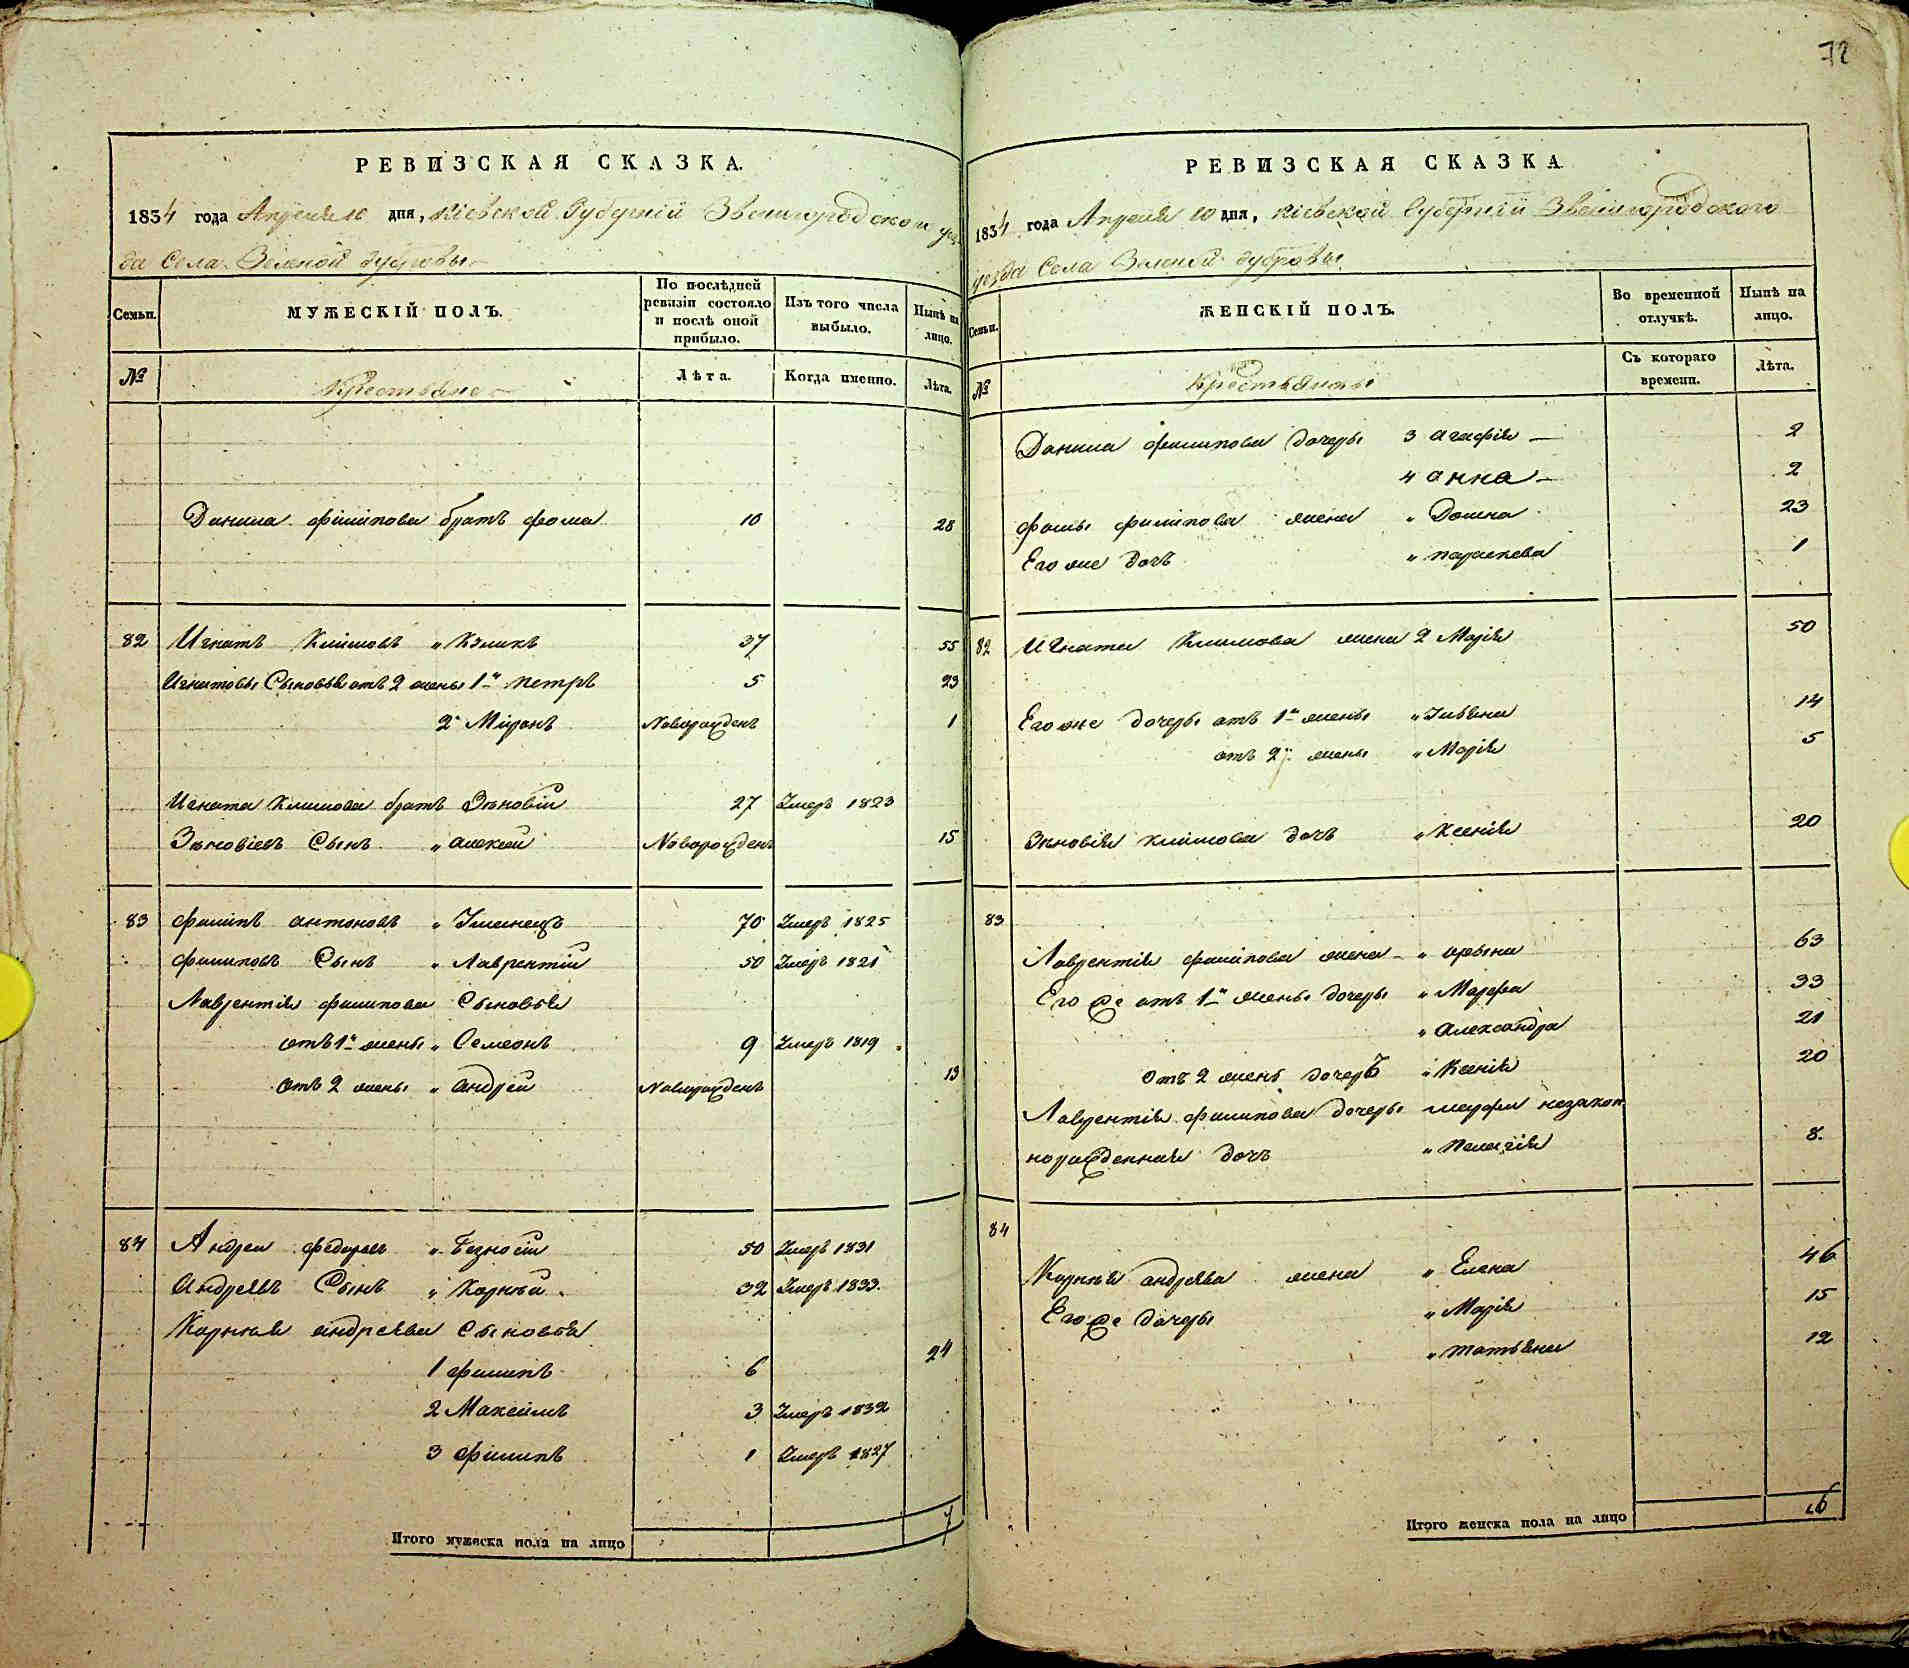 72
РЕВИЗСКАЯ СКАЗКА.
1834 года Апреля 10 дня, Кіевской Губерніи Звенигородского уез
да Села Зеленой Дубровы
Семьи.
МУЖЕСКІЙ ПОЛЪ.
По послѣдней ревизіи состояло и послѣ оной прибыло.
Изъ того числа выбыло.
Нынѣ на лицо.
№
Крестьяне
Лѣта.
Когда именно.
Лѣта.
Данила Филипова братъ Фома 10 28
82 Игнатъ Климовъ „ 37 55
Игнатовы Сыновья отъ 2 жены 1й Петръ 5 23
2й Миронъ Новорожденъ 1
Игната Климова братъ Зѣновій 27 Умеръ 1823
Зѣновіевъ Сынъ „ Алексей Новорожденъ 15
83 Филипъ Антоновъ „ 70 Умеръ 1825
Филиповъ Сынъ „ Лаврентій 50 Умеръ 1821
Лаврентія Филипова Сыновья
отъ 1й жены „ Семеонъ 9 Умеръ 1819
отъ 2 жены „ Андрей Новорожденъ 13
84 Андрей Федоровъ „ 50 Умеръ 1831
Андреявъ Сынъ „ Карнѣй 32 Умеръ 1833
Карнѣя Андреява Сыновья
1 Филипъ 6 24
2 Максимъ 3 Умеръ 1832
3 Филипъ 1 Умеръ 1827
Итого мужеска пола на лицо 7
РЕВИЗСКАЯ СКАЗКА
1834 года Апреля 10 дня, Кіевской Губерніи Звенигородского
уезда Села Зеленой Дубровы
Семьи.
ЖЕНСКІЙ ПОЛЪ.
Во временной отлучкѣ.
Нынѣ на лицо.
№
Крестьянки
Съ котораго времени.
Лѣта.
Данила Филипова дочеры 3 Агафія 2
4 Анна 2
Фомы Филипова жена „ Домна 23
Его же дочъ „ Параскева 1
82 Игната Климова жена 2 Марія 50
Его же дочеры отъ 1й жены „ Ульяна 14
отъ 2й жены „ Марія 5
Зѣновія Климова дочъ „ Ксенія 20
83
Лаврентія Филипова жена „ Орына 63
Его же отъ 1й жены дочеры „ Марфа 33
„ Александра 21
Отъ 2 жены дочерь „ Ксенія 20
Лаврентія Филипова дочеры Марфы незакон
норожденная дочъ „ Пелагія 8
84
Карнѣя Андреява жена „ Елена 46
Его же дочеры „ Марія 15
„ Татьяна 12
Итого женска пола на лицо 16